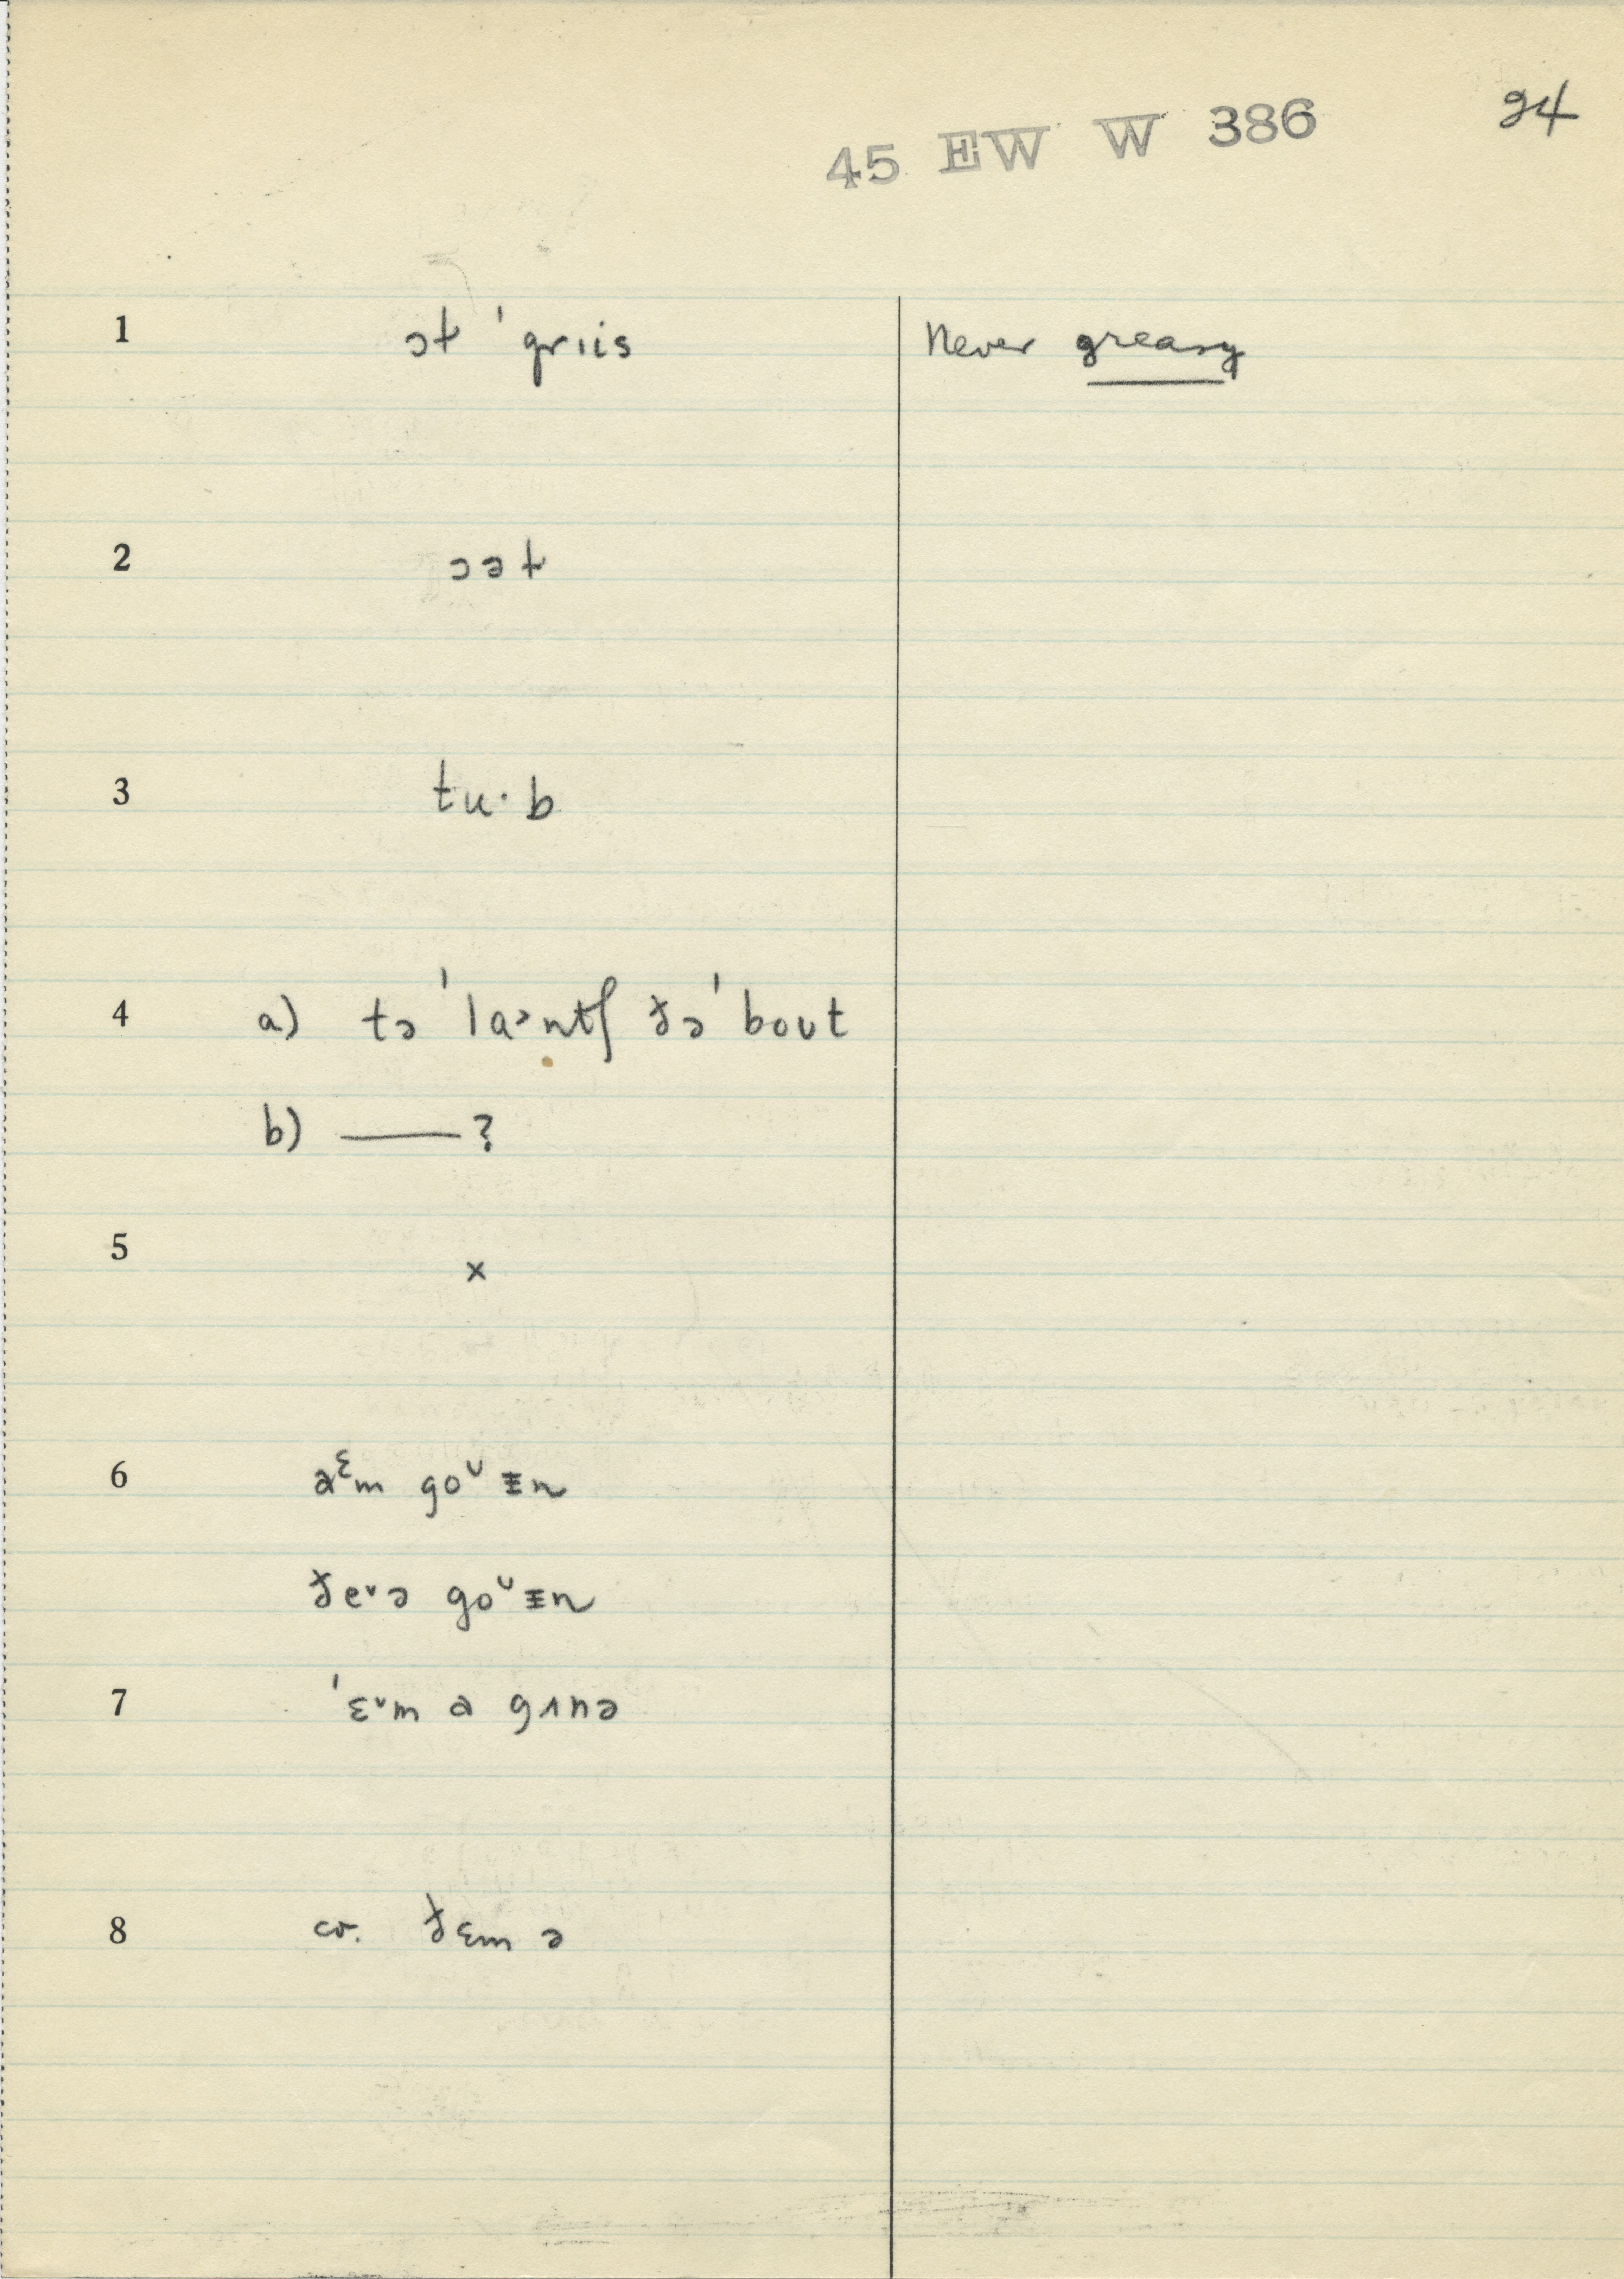 24
45 EW W 386
1 ɔt ˈgrɪis Never greasy
2 ɔət
3 tu·b
4 a) tə ˈla˃ntʃ ðə ˈbout
b) —— ?
5 x
6 aᵋm goᴜɪn
ðe˅ə goᴜɪn
7 ˈɛ˅m a gʌnə
8 cr. ðɛm ə